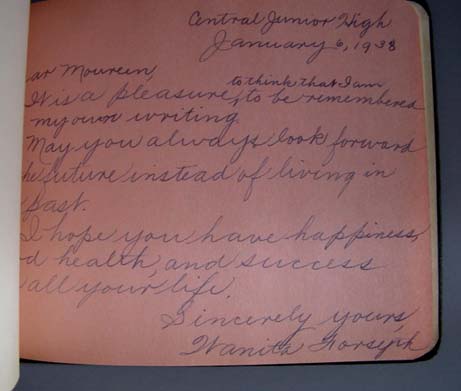 Central Junior High
January 6, 1938
ar Moureen,
to think that I am
It is a pleasure, to be remembered
my own writing
May you always look forward
he future instead of living in
past.
I hope you have happiness,
d health, and success
all your life.
Sincerely yours,
Wanita Forseph